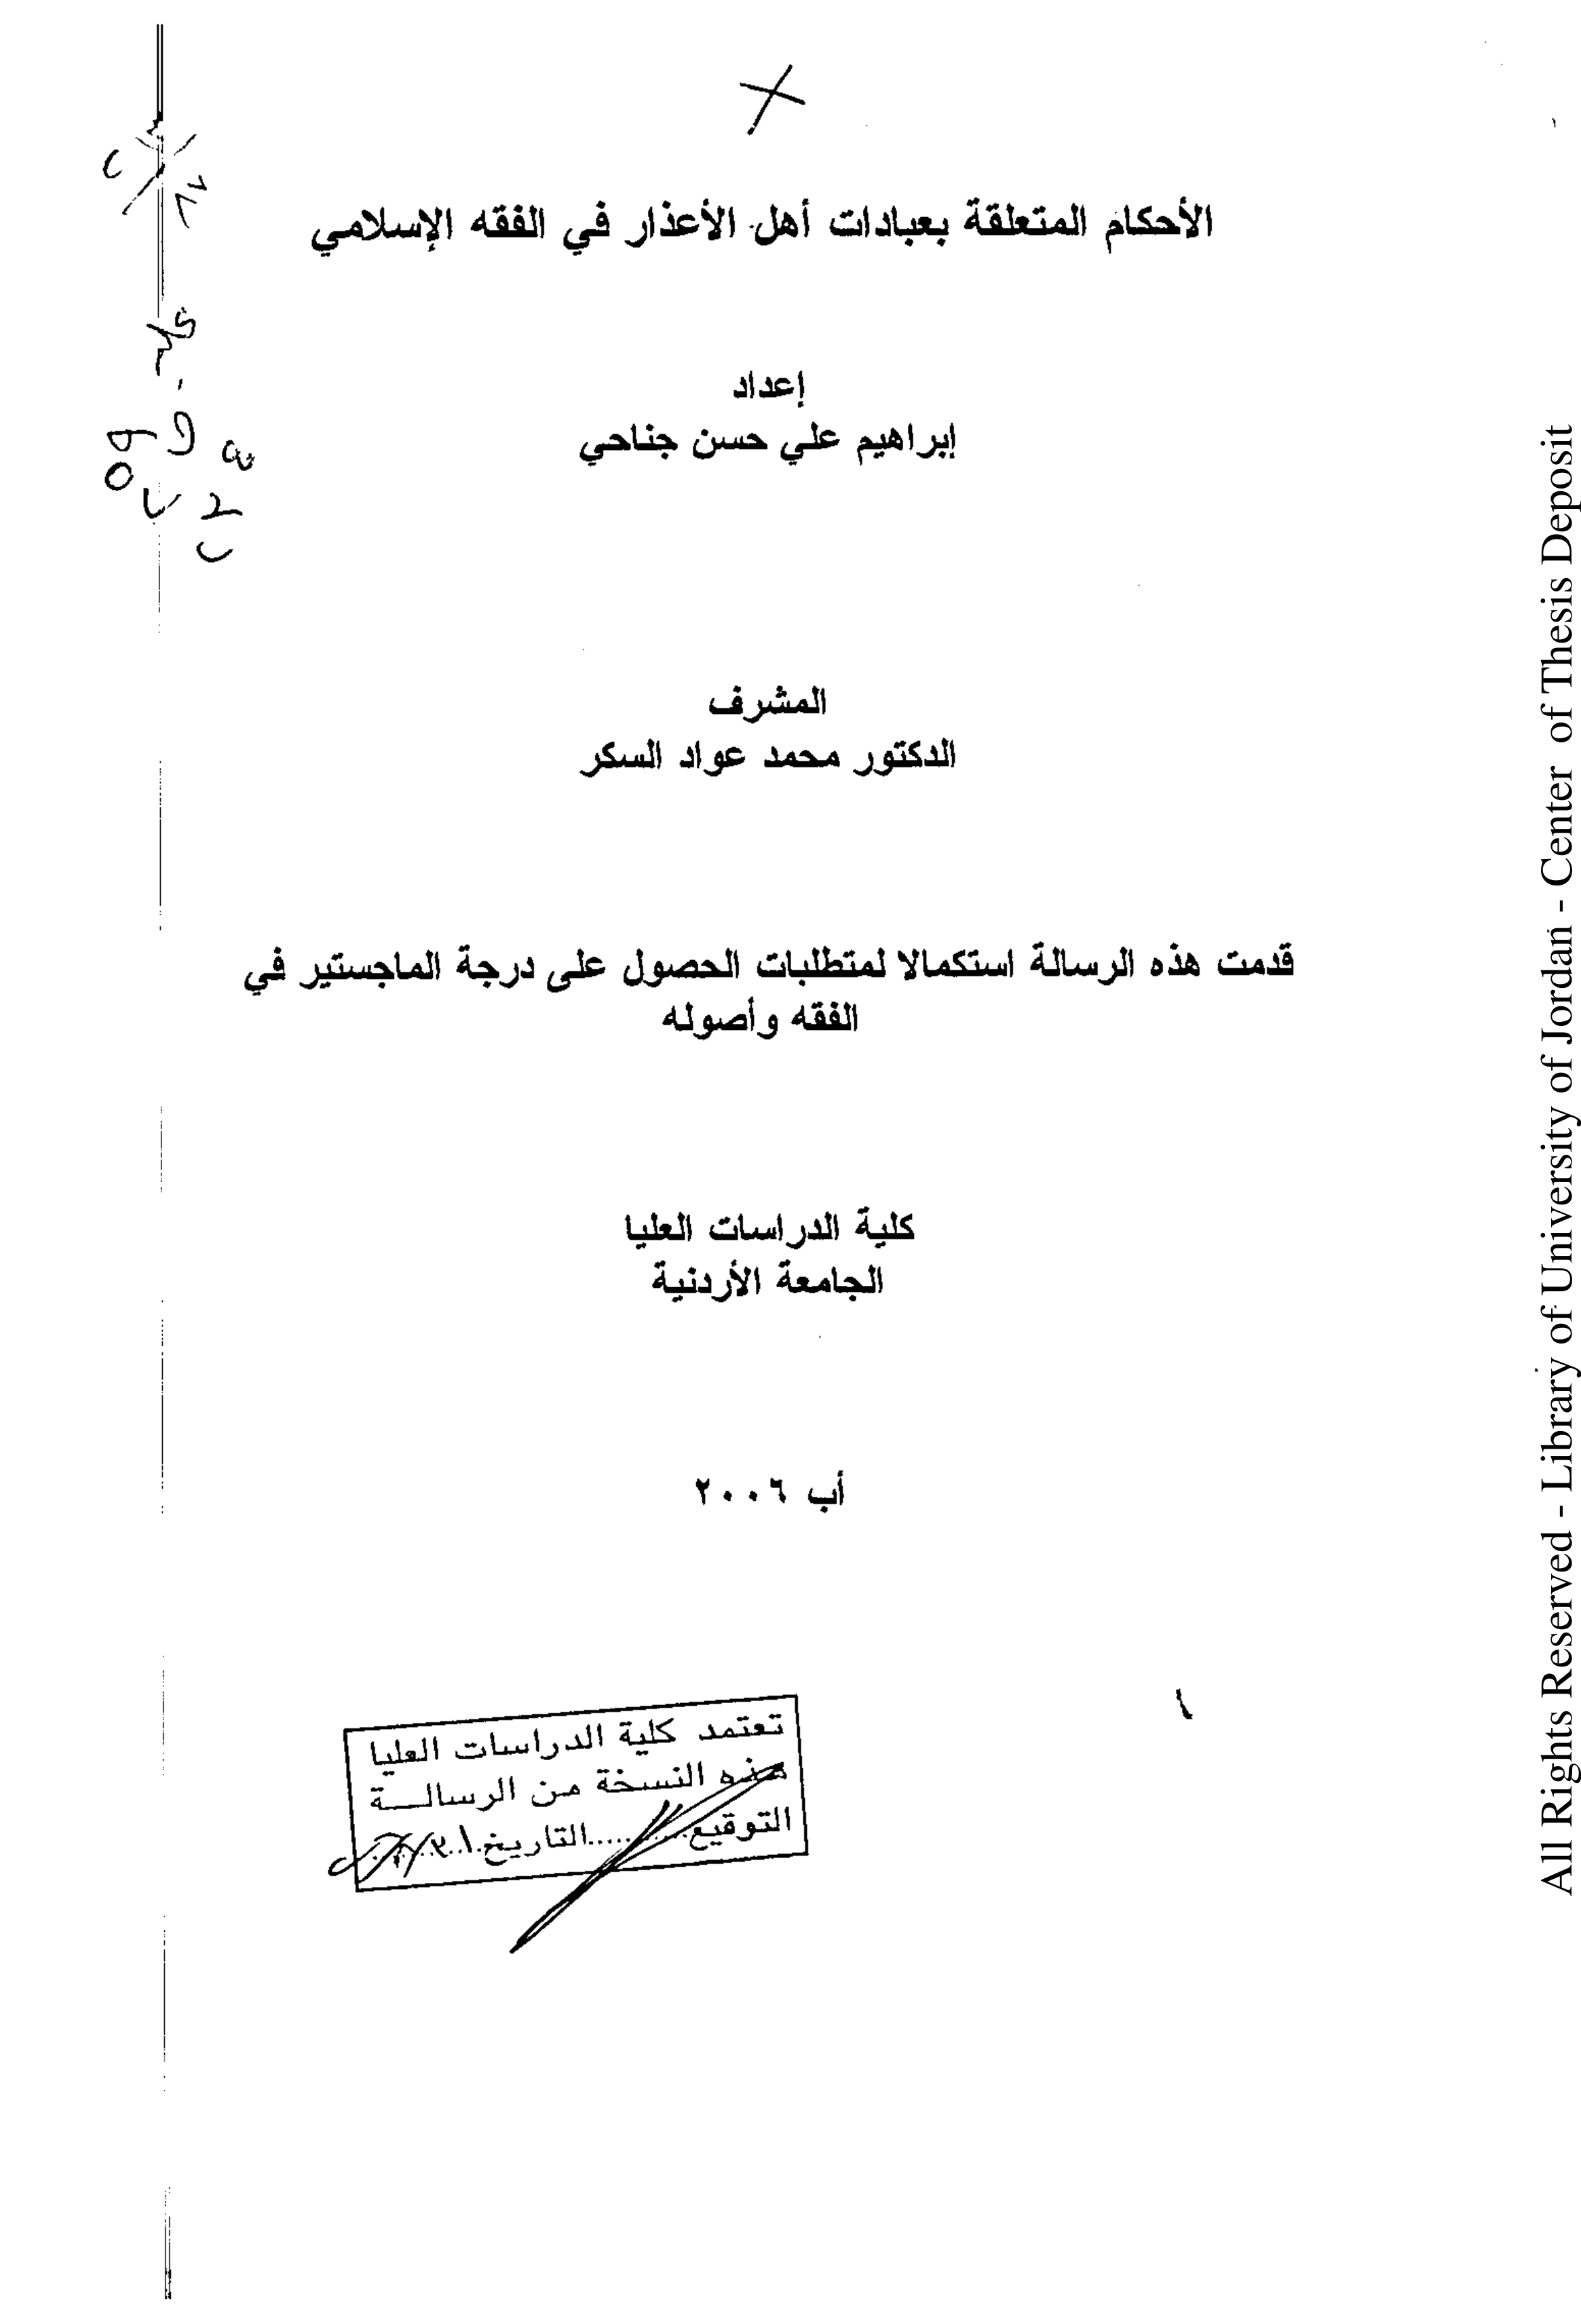 الأحكام المتعلقة بعبادات أهل الأعذار في الفقه الإسلامي
إعداد
إبراهيم علي حسن جناحي
المشرف
الدكتور محمد عواد السكر
قدمت هذه الرسالة استكمالا لمتطلبات الحصول على درجة الماجستير في
الفقه وأصوله
كلية الدراسات العليا
الجامعة الأردنية
أب ٢٠٠٦
تعتمد كلية الدراسات العليا
هذه النسخة من الرسالـــة
التوقيع............التاريخ
All Rights Reserved - Library of University of Jordan - Center of Thesis Deposit